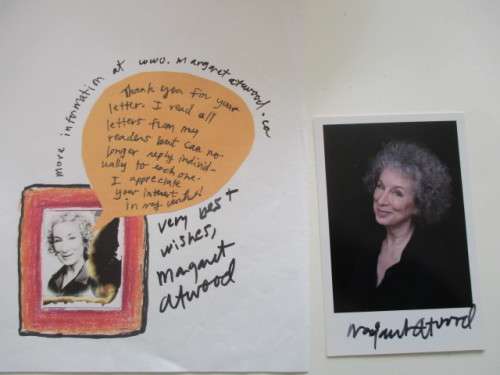 more information at www.margaretatwood.ca
Thank you for your
letter. I read all
letters from my
readers but can no
longer reply individ-
ually to each one.
I appreciate
your interest
in my work!
very best
wishes,
Margaret
Atwood
Margaret Atwood